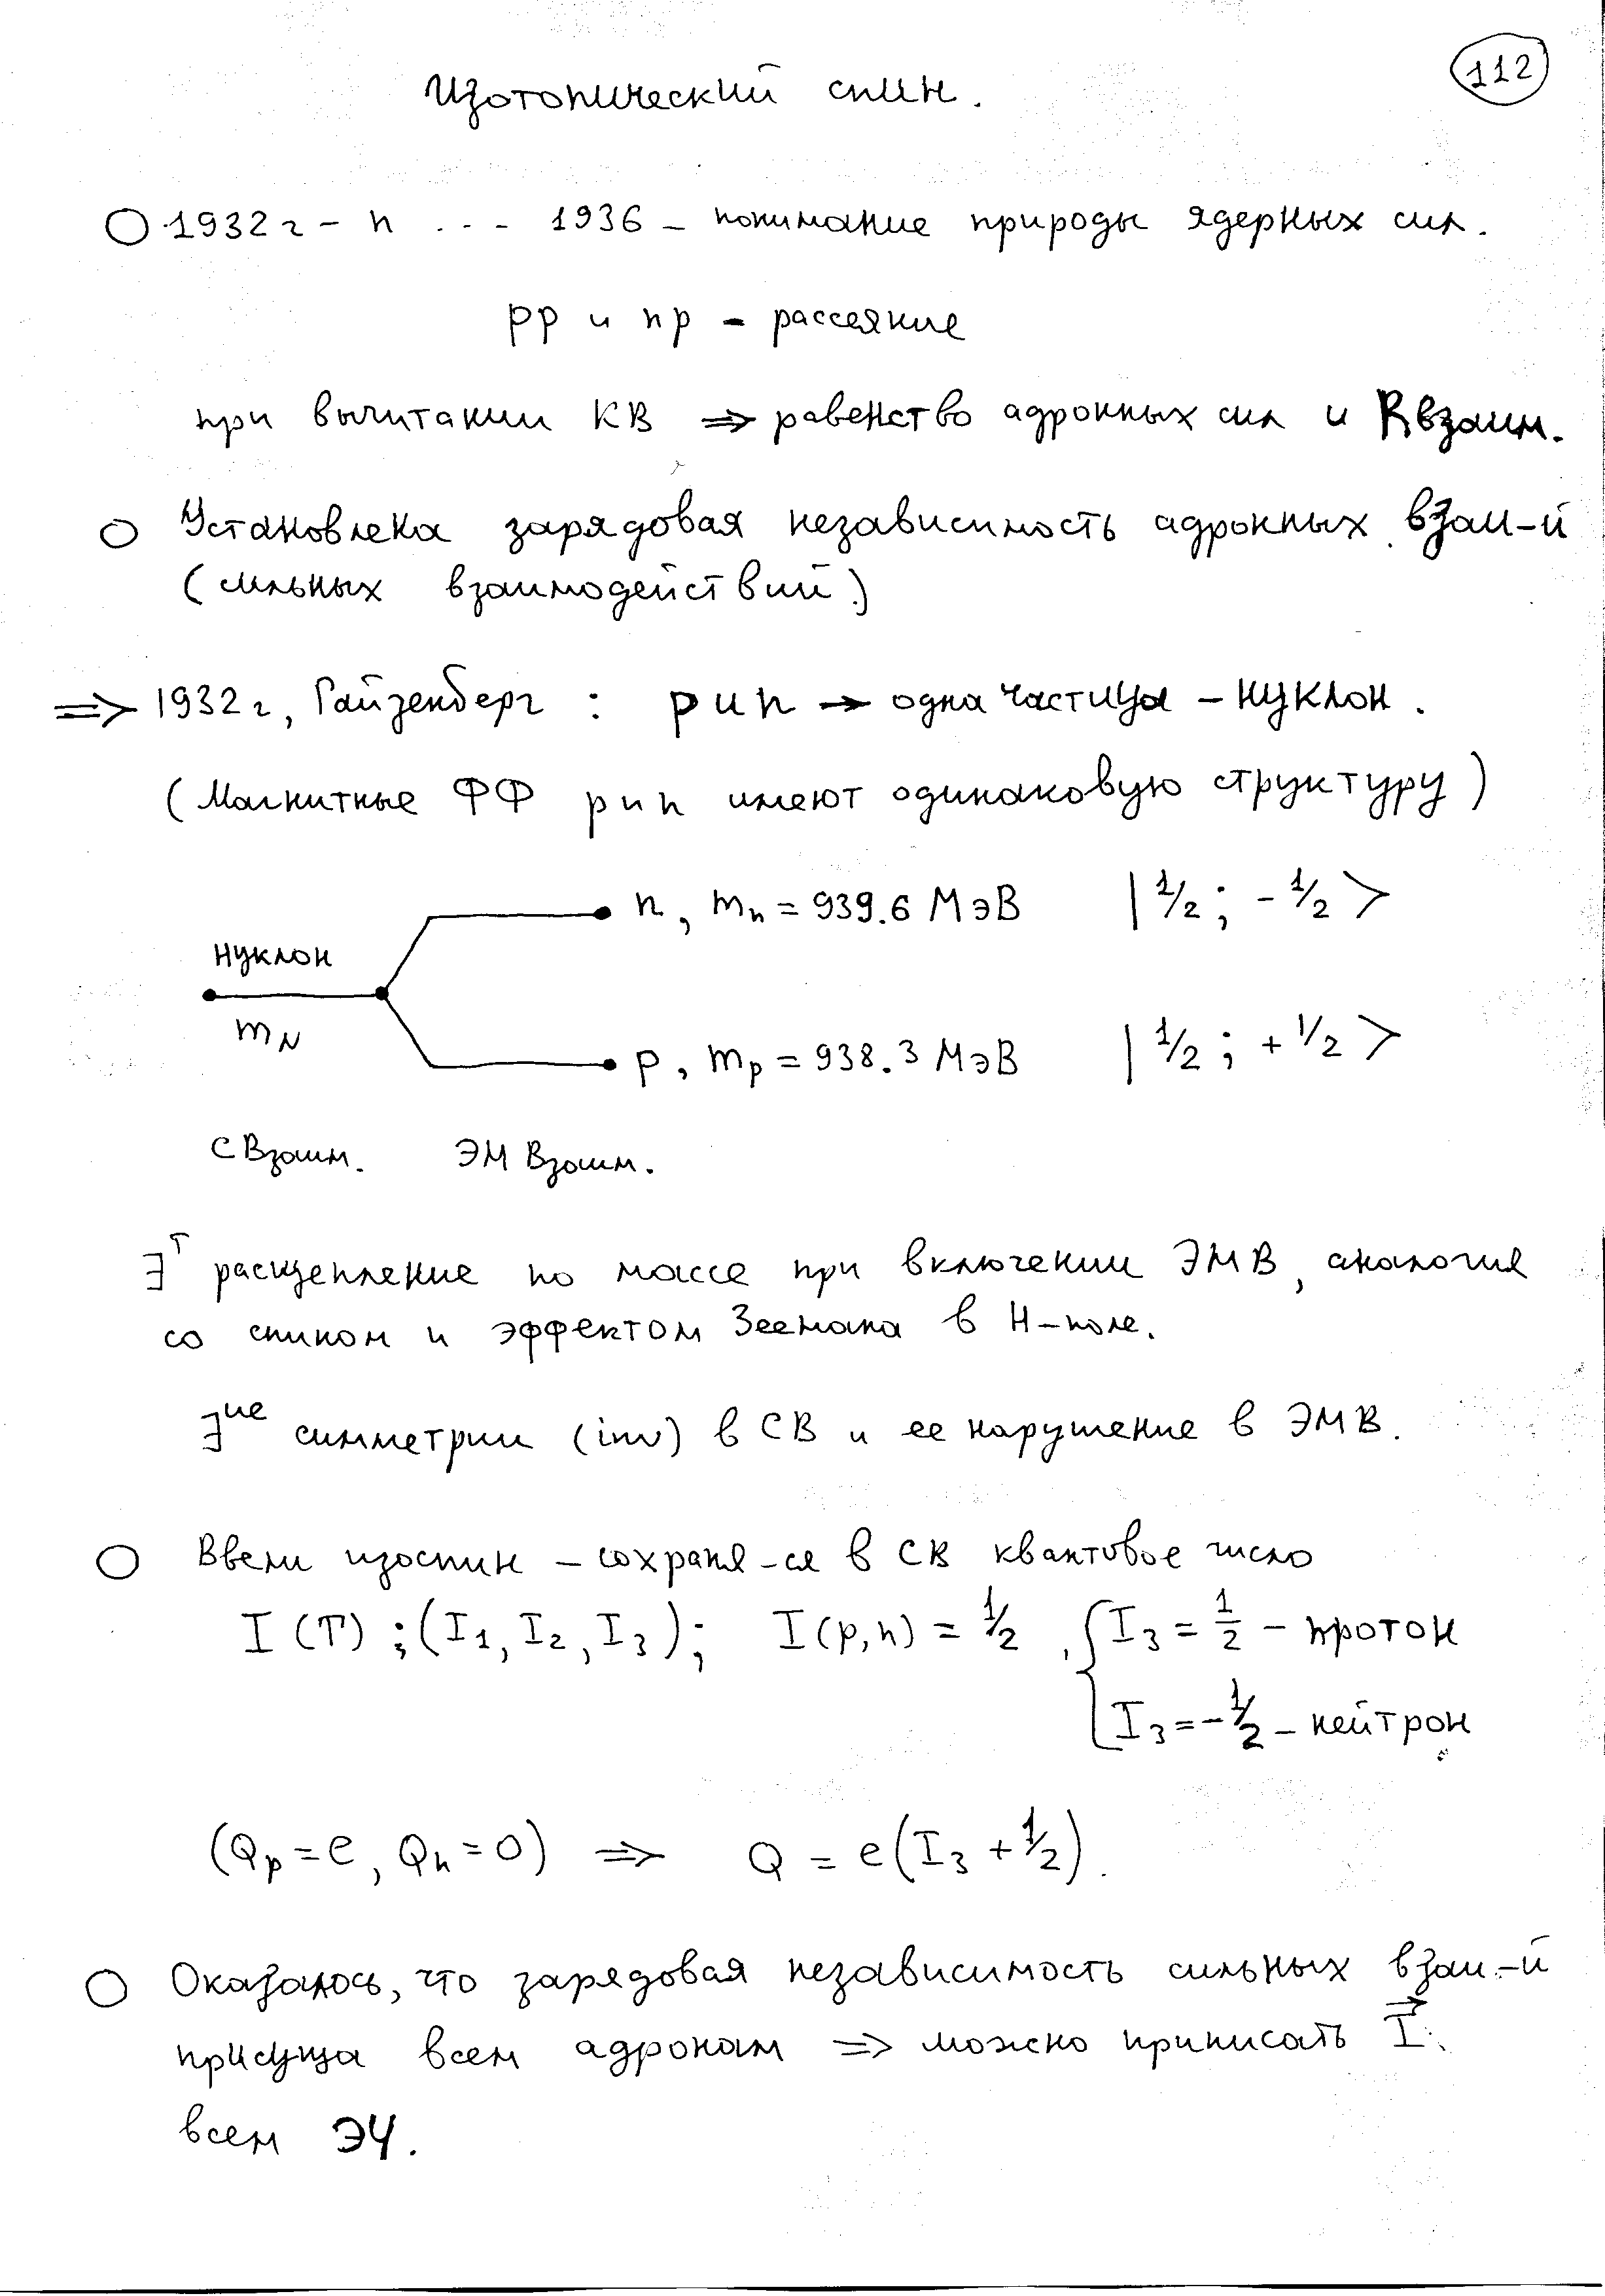 112
Изотопический спин.
1932 г – n ... 1936 – понимание природы ядерных сил.
pp и np – рассеяние
при вычитании КВ ⇒ равенство адронных сил и Rвзаим.
Установлена зарядовая независимость адронных взаи-й
(сильных взаимодействий)
⇒ 1932 г, Гайзенберг : p и n → одна частица – нуклон.
(Магнитные ФФ p и n имеют одинаковую структуру)
n, mn = 939.6 МэВ |1/2; -1/2>
нуклон
mN
p, mp = 938.3 МэВ |1/2; +1/2>
СВзаим. ЭМ Взаим.
∃т расщепление по массе при включении ЭМВ, аналогия
со спином и эффектом Зеемана в H-поле.
∃ие симметрии (inv) в СВ и ее нарушение в ЭМВ.
Ввели изоспин – сохраня-ся в СВ квантовое число
I (T) ; (I1, I2, I3); I(p,n) = 1/2, { I3 = 1/2 – протон
I3 = -1/2 – нейтрон
(Qp = e, Qn = 0) ⇒ Q = e(I3 + 1/2).
Оказалось, что зарядовая независимость сильных взаи-й
присуща всем адронам ⇒ можно приписать I⃗
всем ЭЧ.